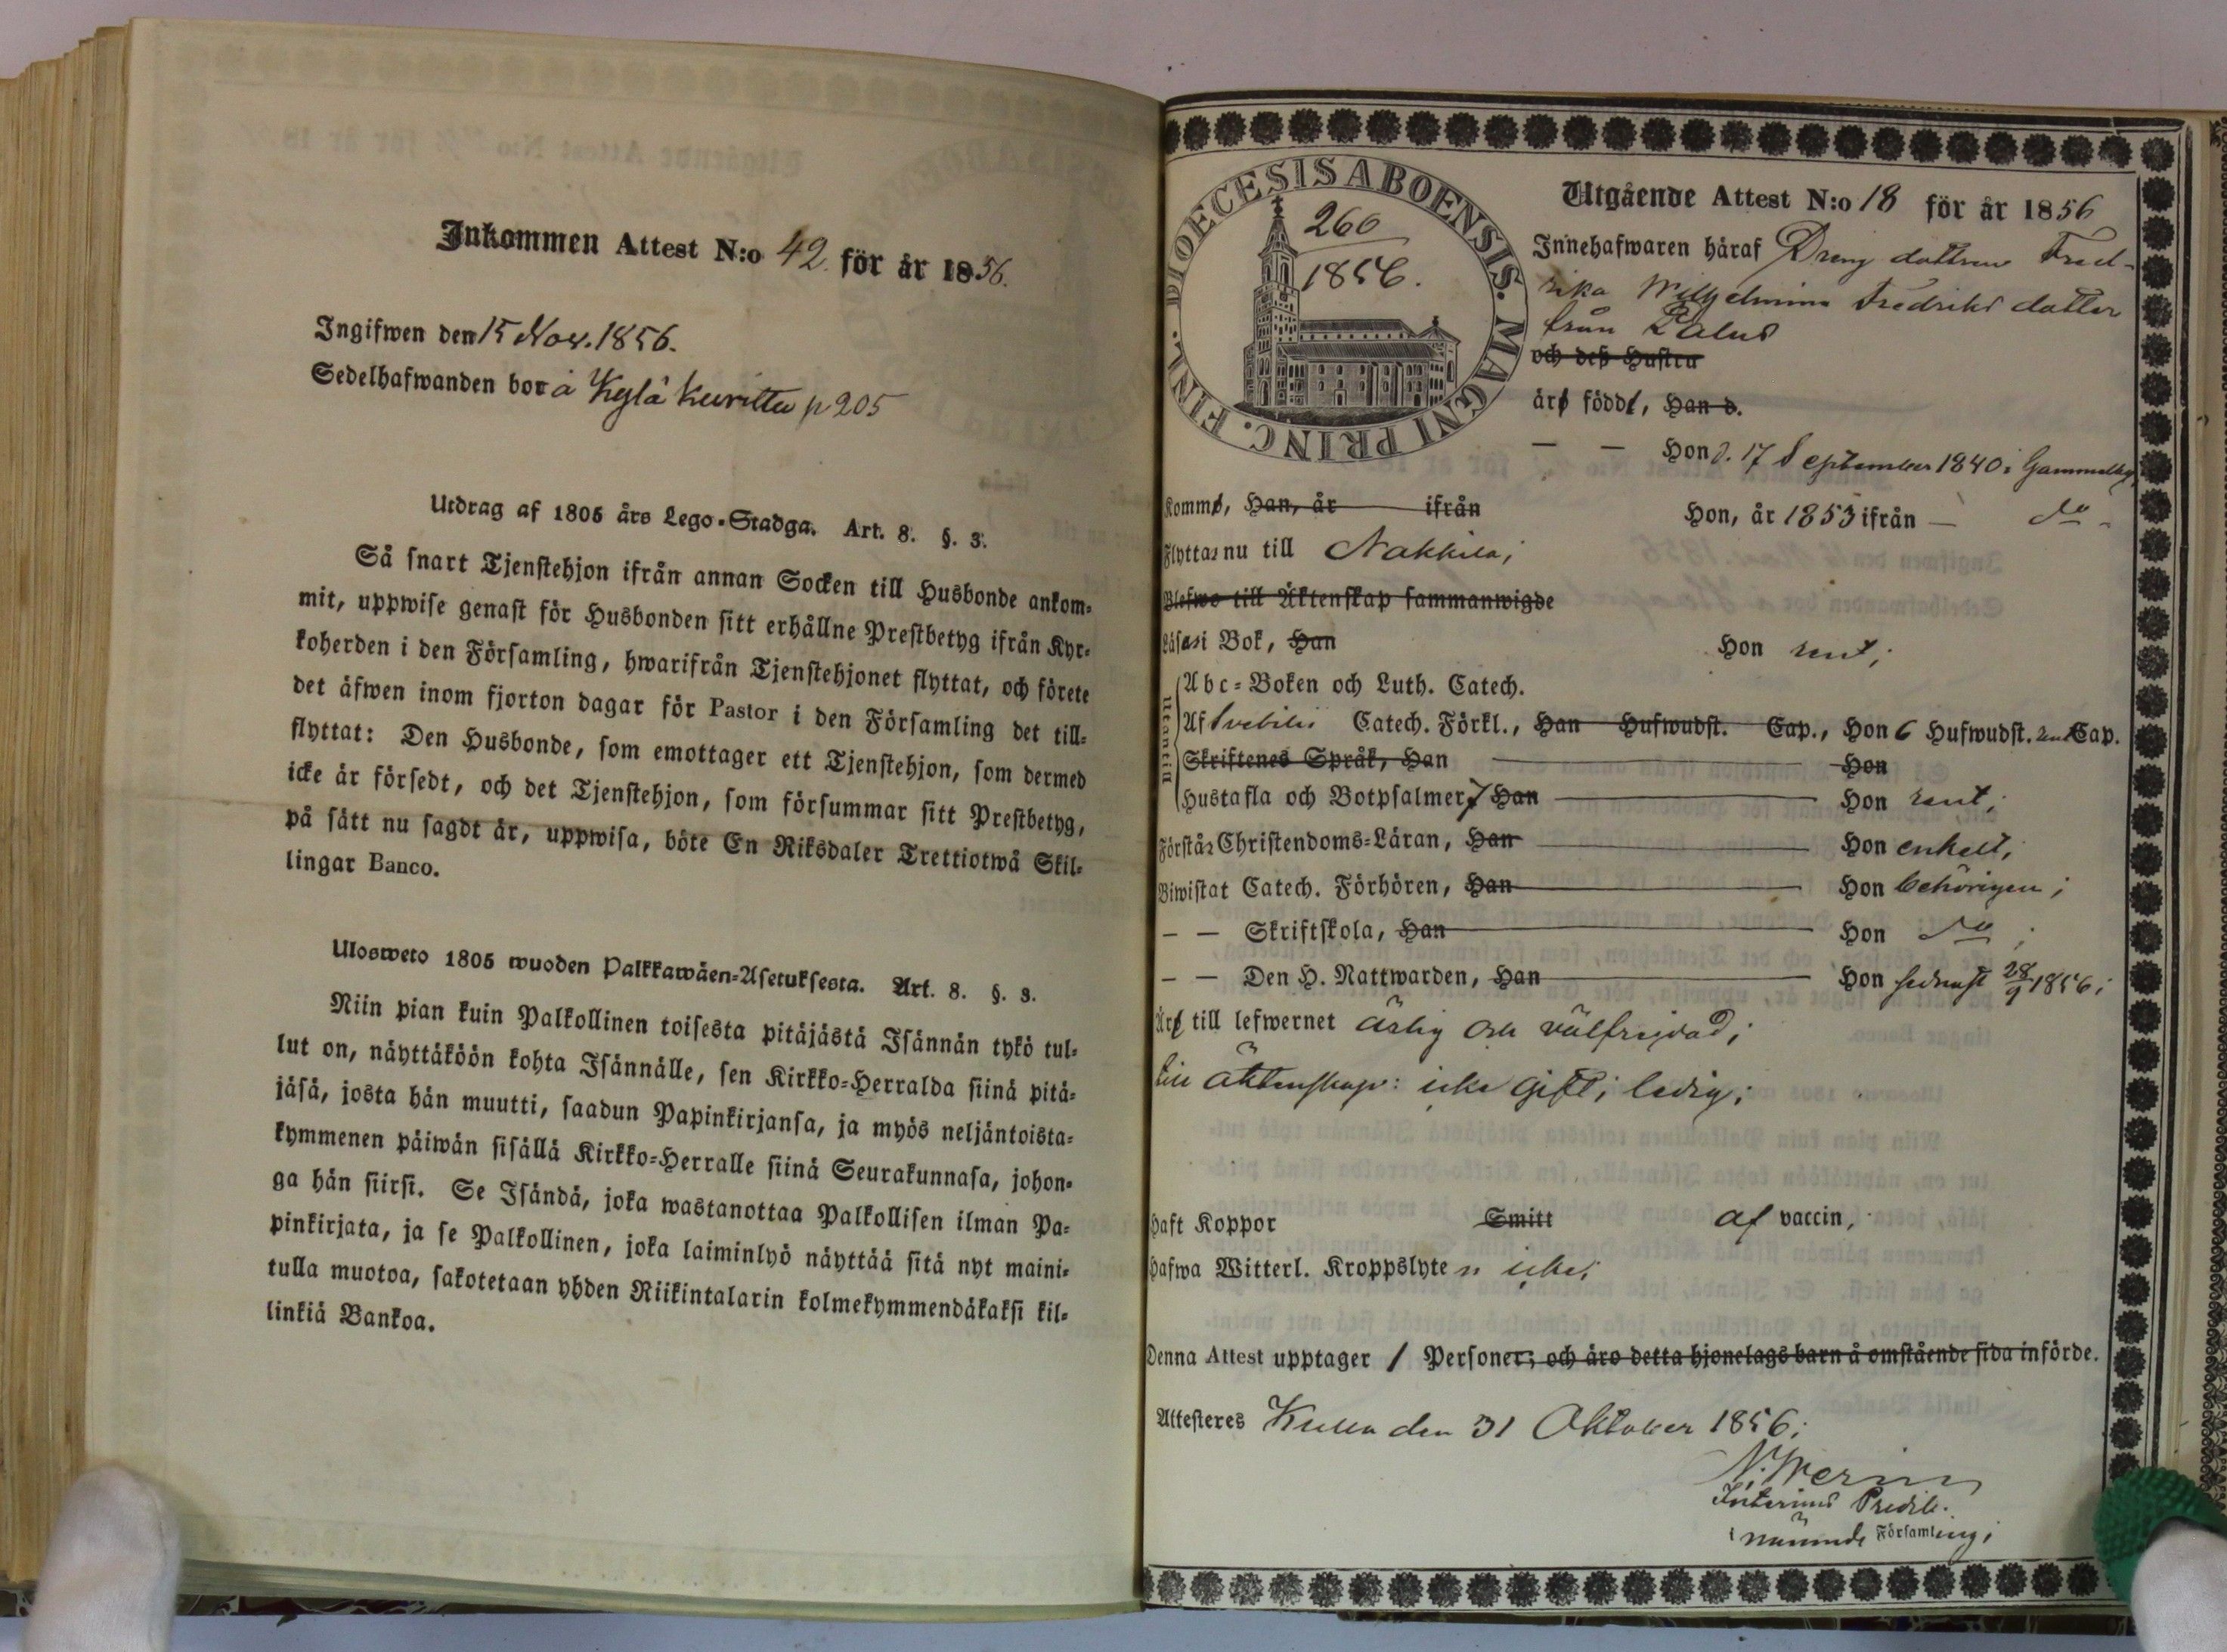 Inkommen Attest N:o 42. för år 1856.
Ingifwen den 15 Nov. 1856.
Sedelhafwanden bor å Kylä Kuvittu p 205
Utdrag af 1805 års Lego-Stadga. Art. 8. §. 3.
Så snart Tjenstehjon ifrån annan Socken till Husbonde ankom-
mit, uppwise genast för Husbonden sitt erhållne Prestbetyg ifrån Kyr-
koherden i den Församling, hwarifrån Tjenstehjonet flyttat, och förete
det äfwen inom fjorton dagar för Pastor i den Församling det till-
flyttat: Den Husbonde, som emottager ett Tjenstehjon, som dermed
icke är försedt, och det Tjenstehjon, som försummar sitt Prestbetyg,
på sätt nu sagdt är, uppwisa, böte En Riksdaler Trettiotwå Skil-
lingar Banco.
Ulosweto 1805 wuoden Palkkawäen-Asetuksesta. Art. 8. §. 3.
Niin pian kuin Palkollinen toisesta pitäjästä Isännän tykö tul-
lut on, näyttäköön kohta Isännälle, sen Kirkko-Herralda siinä pitä-
jäsä, josta hän muutti, saadun Papinkirjansa, ja myös neljäntoista-
kymmenen päiwän sisällä Kirkko-Herralle siinä Seurakunnasa, johon-
ga hän siirsi. Se Isändä, joka wastanottaa Palkollisen ilman Pa-
pinkirjata, ja se Palkollinen, joka laiminlyö näyttää sitä nyt maini-
tulla muotoa, sakotetaan yhden Riikintalarin kolmekymmendäkaksi kil-
linkiä Bankoa.
DIOECESIS ABOENSIS. MAGNI PRINC. FINL.
260
1856.
Utgående Attest N:o 18 för år 1856
Innehafwaren häraf Dreng dottren Fred-
rika Wilhelmina Fredriks dotter
från Palus
och dess Hustru
äro född, Han d.
— — Hon d. 17 September 1840 i Gammelby
Komm, Han, år ifrån Hon, år 1853 ifrån — do -
Flyttar nu till Nakkila;
Blefwo till Äktenskap sammanwigde
Läser i Bok, Han Hon rent;
Utantill
Abc-Boken och Luth. Catech.
Af Svebilii Catech. Förkl., Han Hufwudst. Cap., Hon 6 Hufwudst. Cap.
Skriftenes Språk, Han Hon
Hustafla och Botpsalmer, 7 Han Hon rent;
Förstår Christendoms-Läran, Han Hon enkelt;
Biwistat Catech. Förhören, Han Hon behörigen;
— — Skriftskola, Han Hon do;
— — Den H. Nattwarden, Han Hon sednast 28/9 1856;
Är till lefwernet ärlig och välfrejdad;
till äktenskap: icke gift; ledig;
Haft Koppor Smitt af vaccin,
Hafwa Witterl. Kroppslyten icke;
Denna Attest upptager 1 Personer; och äro detta hjonelags barn å omstående sida införde.
Attesteres Kulla den 31 Oktober 1856;
Interims Predik.
i nämnde Församling;